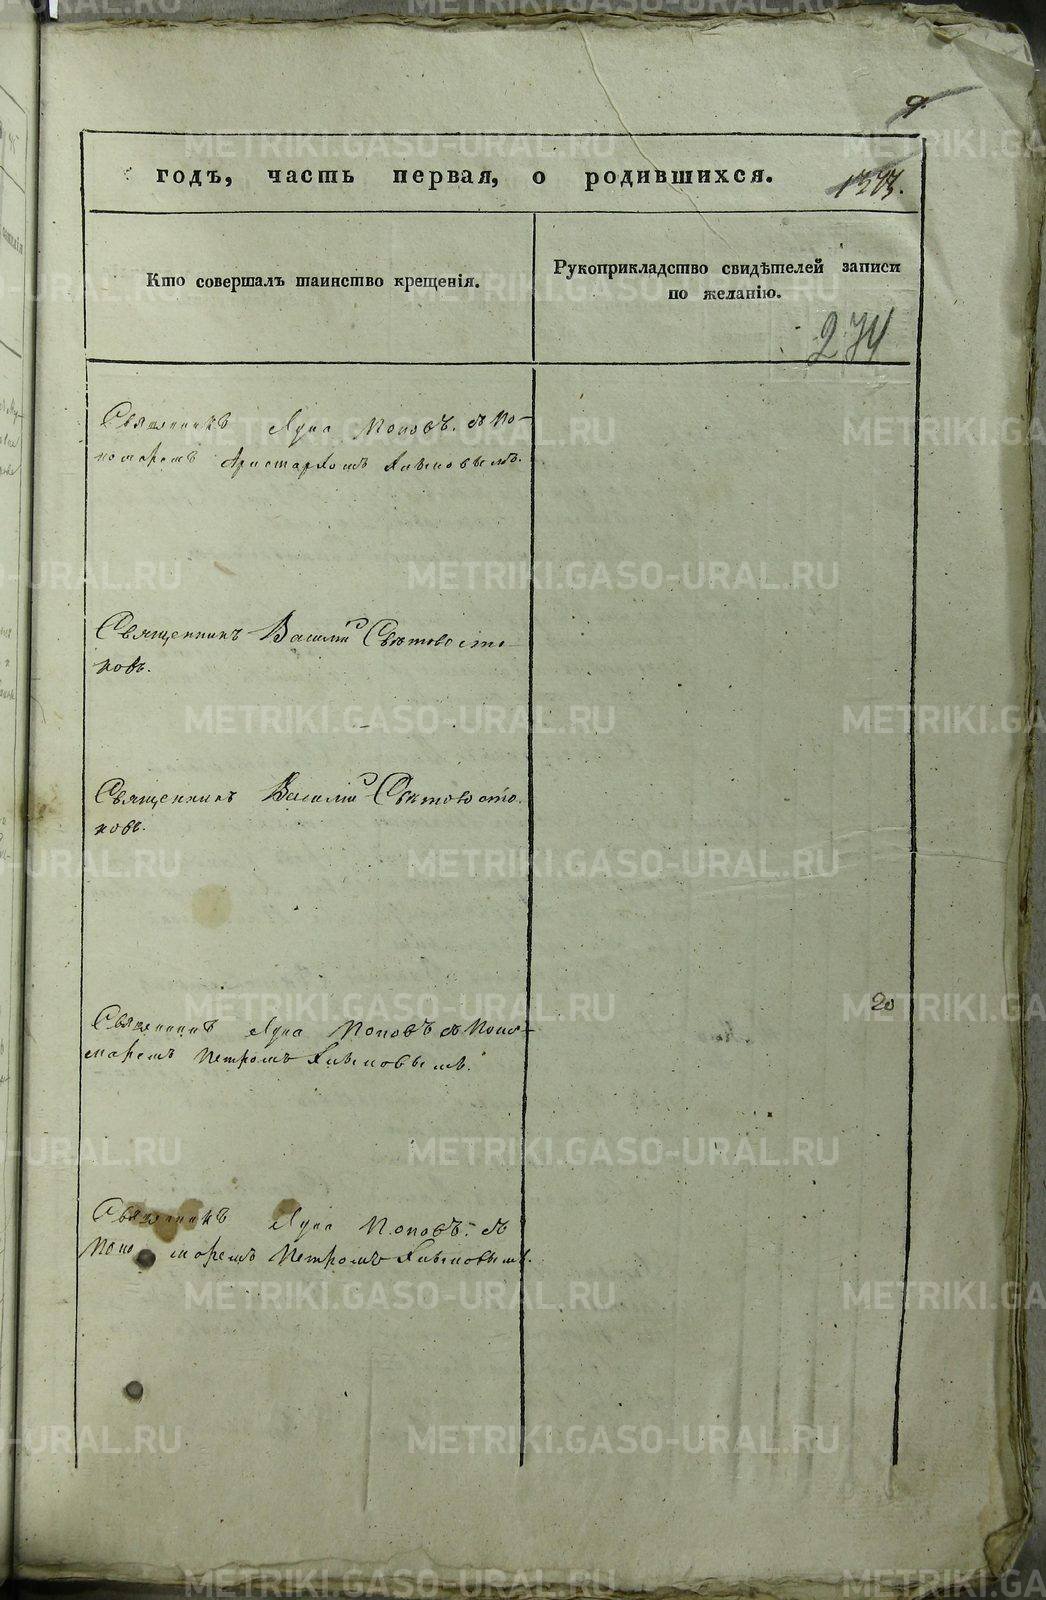 9.
годъ, часть первая, о родившихся.
Кто совершалъ таинство крещенія.
Рукоприкладство свидѣтелей записи
по желанію.
274
Священникъ Лука Поповъ. съ По-
номаремъ Аристархомъ Хлыновымъ.
Священникъ Василій Свѣтовосто-
ковъ.
Священникъ Василій Свѣтовосто-
ковъ.
20
Священникъ Лука Поповъ съ Поно-
маремъ Петромъ Хлыновымъ.
Священникъ Лука Поповъ. съ
Поно маремъ Петромъ Хлыновымъ.
METRIKI.GASO-URAL.RU